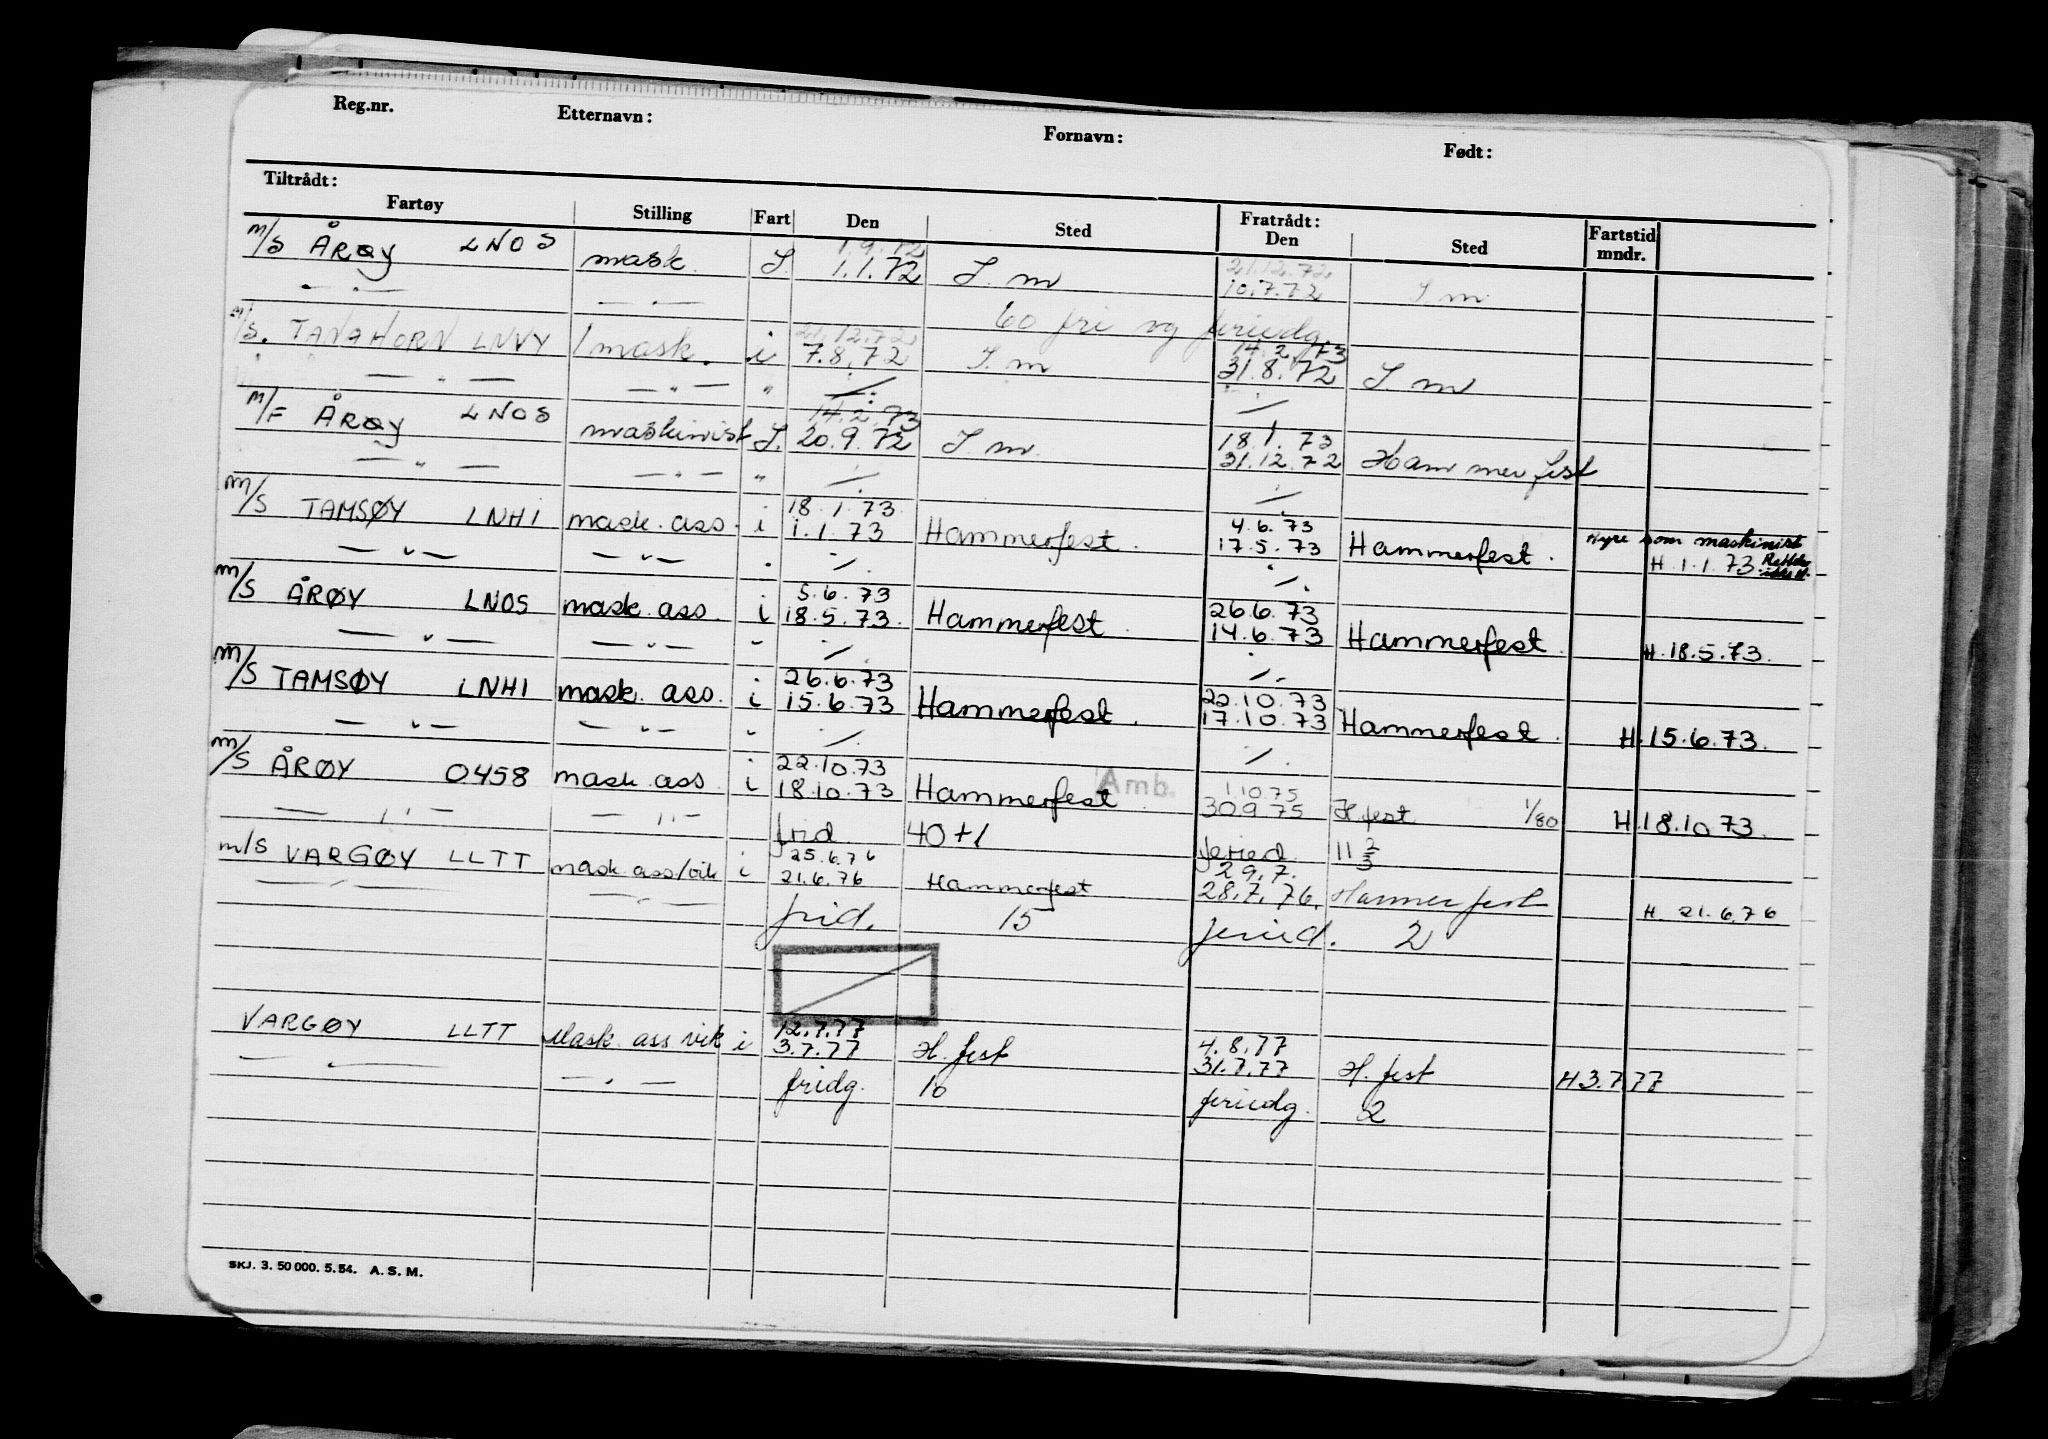 Reg.nr. Etternavn: Fornavn: Født:
Tiltrådt: Fratrådt:
Fartøy Stilling Fart Den Sted Den Sted Fartstid mndr.
1.9.72 21.12.72
m/s ÅRØY LNOS mask. I. 1.1.72 I. m 10.7.72 I m
— " — — " — 60 fri og feriedg.
21.12.72 14.2.73
m/s. TANAHORN LNVY 1 mask. i 7.8.72 I. m 31.8.72 I m
— " — — " — " ./. ./.
14.2.73 18.1.73
m/F ÅRØY LNOS maskinist I. 20.9.72 I. m. 31.12.72 Hammerfest
— " — — " — " ./. ./.
18.1.73 4.6.73 Hyre som maskinist
m/s TAMSØY LNHI mask. ass. i 1.1.73 Hammerfest. 17.5.73 Hammerfest. H.1.1.73.
— " — — " — ./. ./.
5.6.73 26.6.73
m/s ÅRØY LNOS mask. ass. i 18.5.73. Hammerfest. 14.6.73 Hammerfest. H.18.5.73.
— " — — " — " ./. ./.
26.6.73 22.10.73
m/s TAMSØY LNHI mask. ass. i 15.6.73 Hammerfest. 17.10.73 Hammerfest. H.15.6.73.
— " — — " — " ./. ./.
22.10.73 Amb. 1.10.75
m/s ÅRØY 0458 mask. ass. i 18.10.73 Hammerfest 30.9.75 H.fest 1/80 H.18.10.73.
— " — — " — frid. 40+1 feried. 11 2/3
25.6.76 29.7.
m/s VARGØY LLTT mask ass/vik i 21.6.76 Hammerfest 28.7.76. Hammerfest H. 21.6.76
— " — — " — frid. 15 feried. 2
12.7.77 4.8.77
VARGØY LLTT Mask. ass vik i 3.7.77 H. fest 31.7.77 H. fest H 3.7.77
— " — — " — fridg. 10 feriedg. 2
SKJ. 3. 50 000. 5. 54. A. S. M.